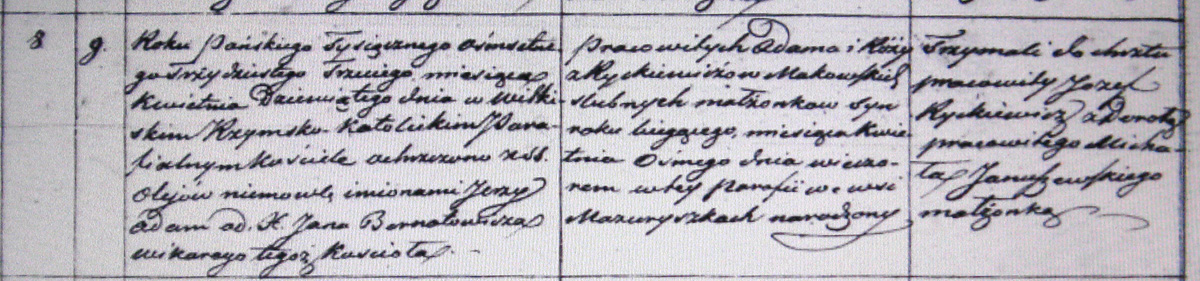 8
9.
Roku Pańskiego Tysiącznego ośmsetne-
go Trzydziestego Trzeciego, miesiąca
Kwietnia Dziewiątego dnia w Wilki-
skim Rzymsko-Katolickim Para-
fialnym Kościele ochrzczono z SS.
Olejów niemowlę imionami Jerzy
Adam od X. Jana Bernatowicza
wikarego tegoż Kościoła.
Pracowitych Adama i Róży
z Ryckiewiczów Makowskich
ślubnych małżonków syn
roku bieżącego, miesiąca Kwie-
tnia Osmego dnia wieczo-
rem w tej Parafii we wsi
Mazuryszkach narodzony
Trzymali do chrztu
pracowity Jozef
Ryckiewicz z Dorotą
pracowitego Micha-
ła Januszewskiego
małżonką